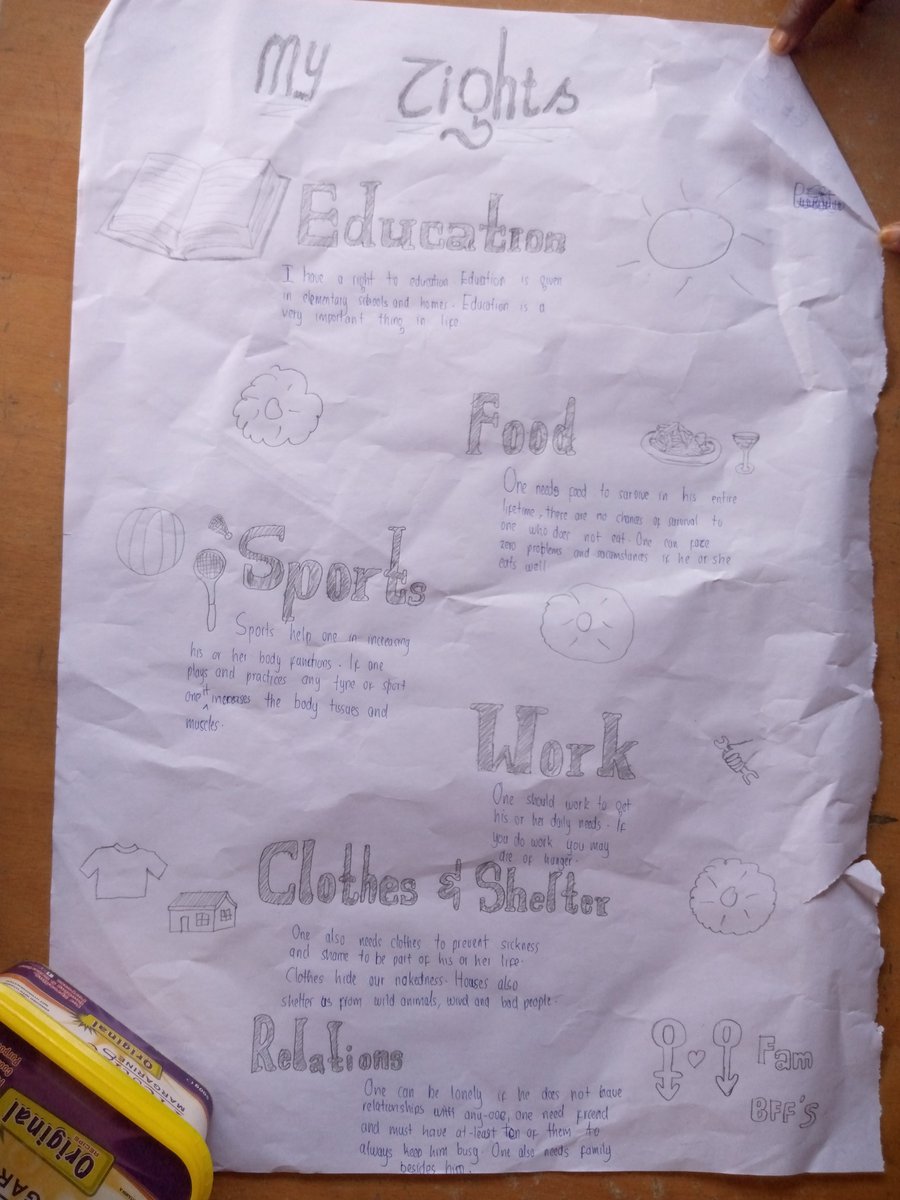 My Rights
Education
I have a right to education. Education is given
in elementary schools and homes. Education is a
very important thing in life.
Food
One needs food to survive in his entire
lifetime, there are no chances of survival to
one who does not eat. One can face
zero problems and circumstances if he or she
eats well
Sports
Sports help one in increasing
his or her body functions. If one
plays and practices any type of sport
one it increases the body tissues and
muscles.
Work
One should work to get
his or her daily needs. If
you do work you may
die of hunger.
Clothes & Shelter
One also needs clothes to prevent sickness
and shame to be part of his or her life.
Clothes hide our nakedness. Houses also
shelter us from wild animals, wind and bad people.
Relations
One can be lonely if he does not have
relationships with any-one, one need friend
and must have at-least ten of them to
always keep him busy. One also needs family
besides him.
Fam
BFF's
Original
MARGARINE
Original
RECIPE